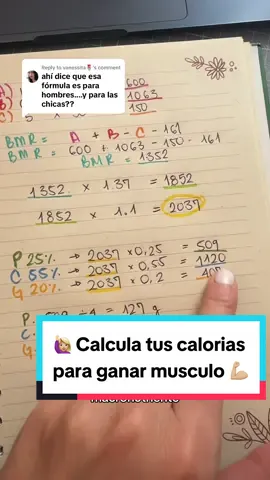 Reply to vaneskita🌹's comment
ahí dice que esa
fórmula es para
hombres....y para las
chicas??
600
1063
150
BMR = A + B - C - 161
BMR = 600 + 1063 - 150 - 161
BMR = 1352
1352 × 1.37 = 1852
1852 × 1.1 = 2037
P 25% → 2037 × 0,25 = 509
C 55% → 2037 × 0,55 = 1120
G 20% → 2037 × 0,2 = 407
🙋🏻‍♀️ Calcula tus calorias
para ganar musculo 💪🏼